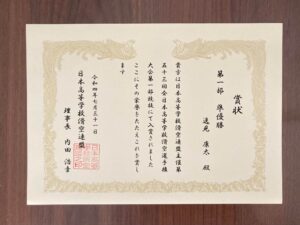 賞状
第一部 準優勝
康太 殿
貴方は日本高等学校滑空連盟主催第
五十三回全日本高等学校滑空選手権
大会第一部競技にて入賞されました
ここにその栄誉をたたえこれを賞し
ます
令和四年七月三十一日
日本高等学校滑空連盟
理事長 内田 浩幸